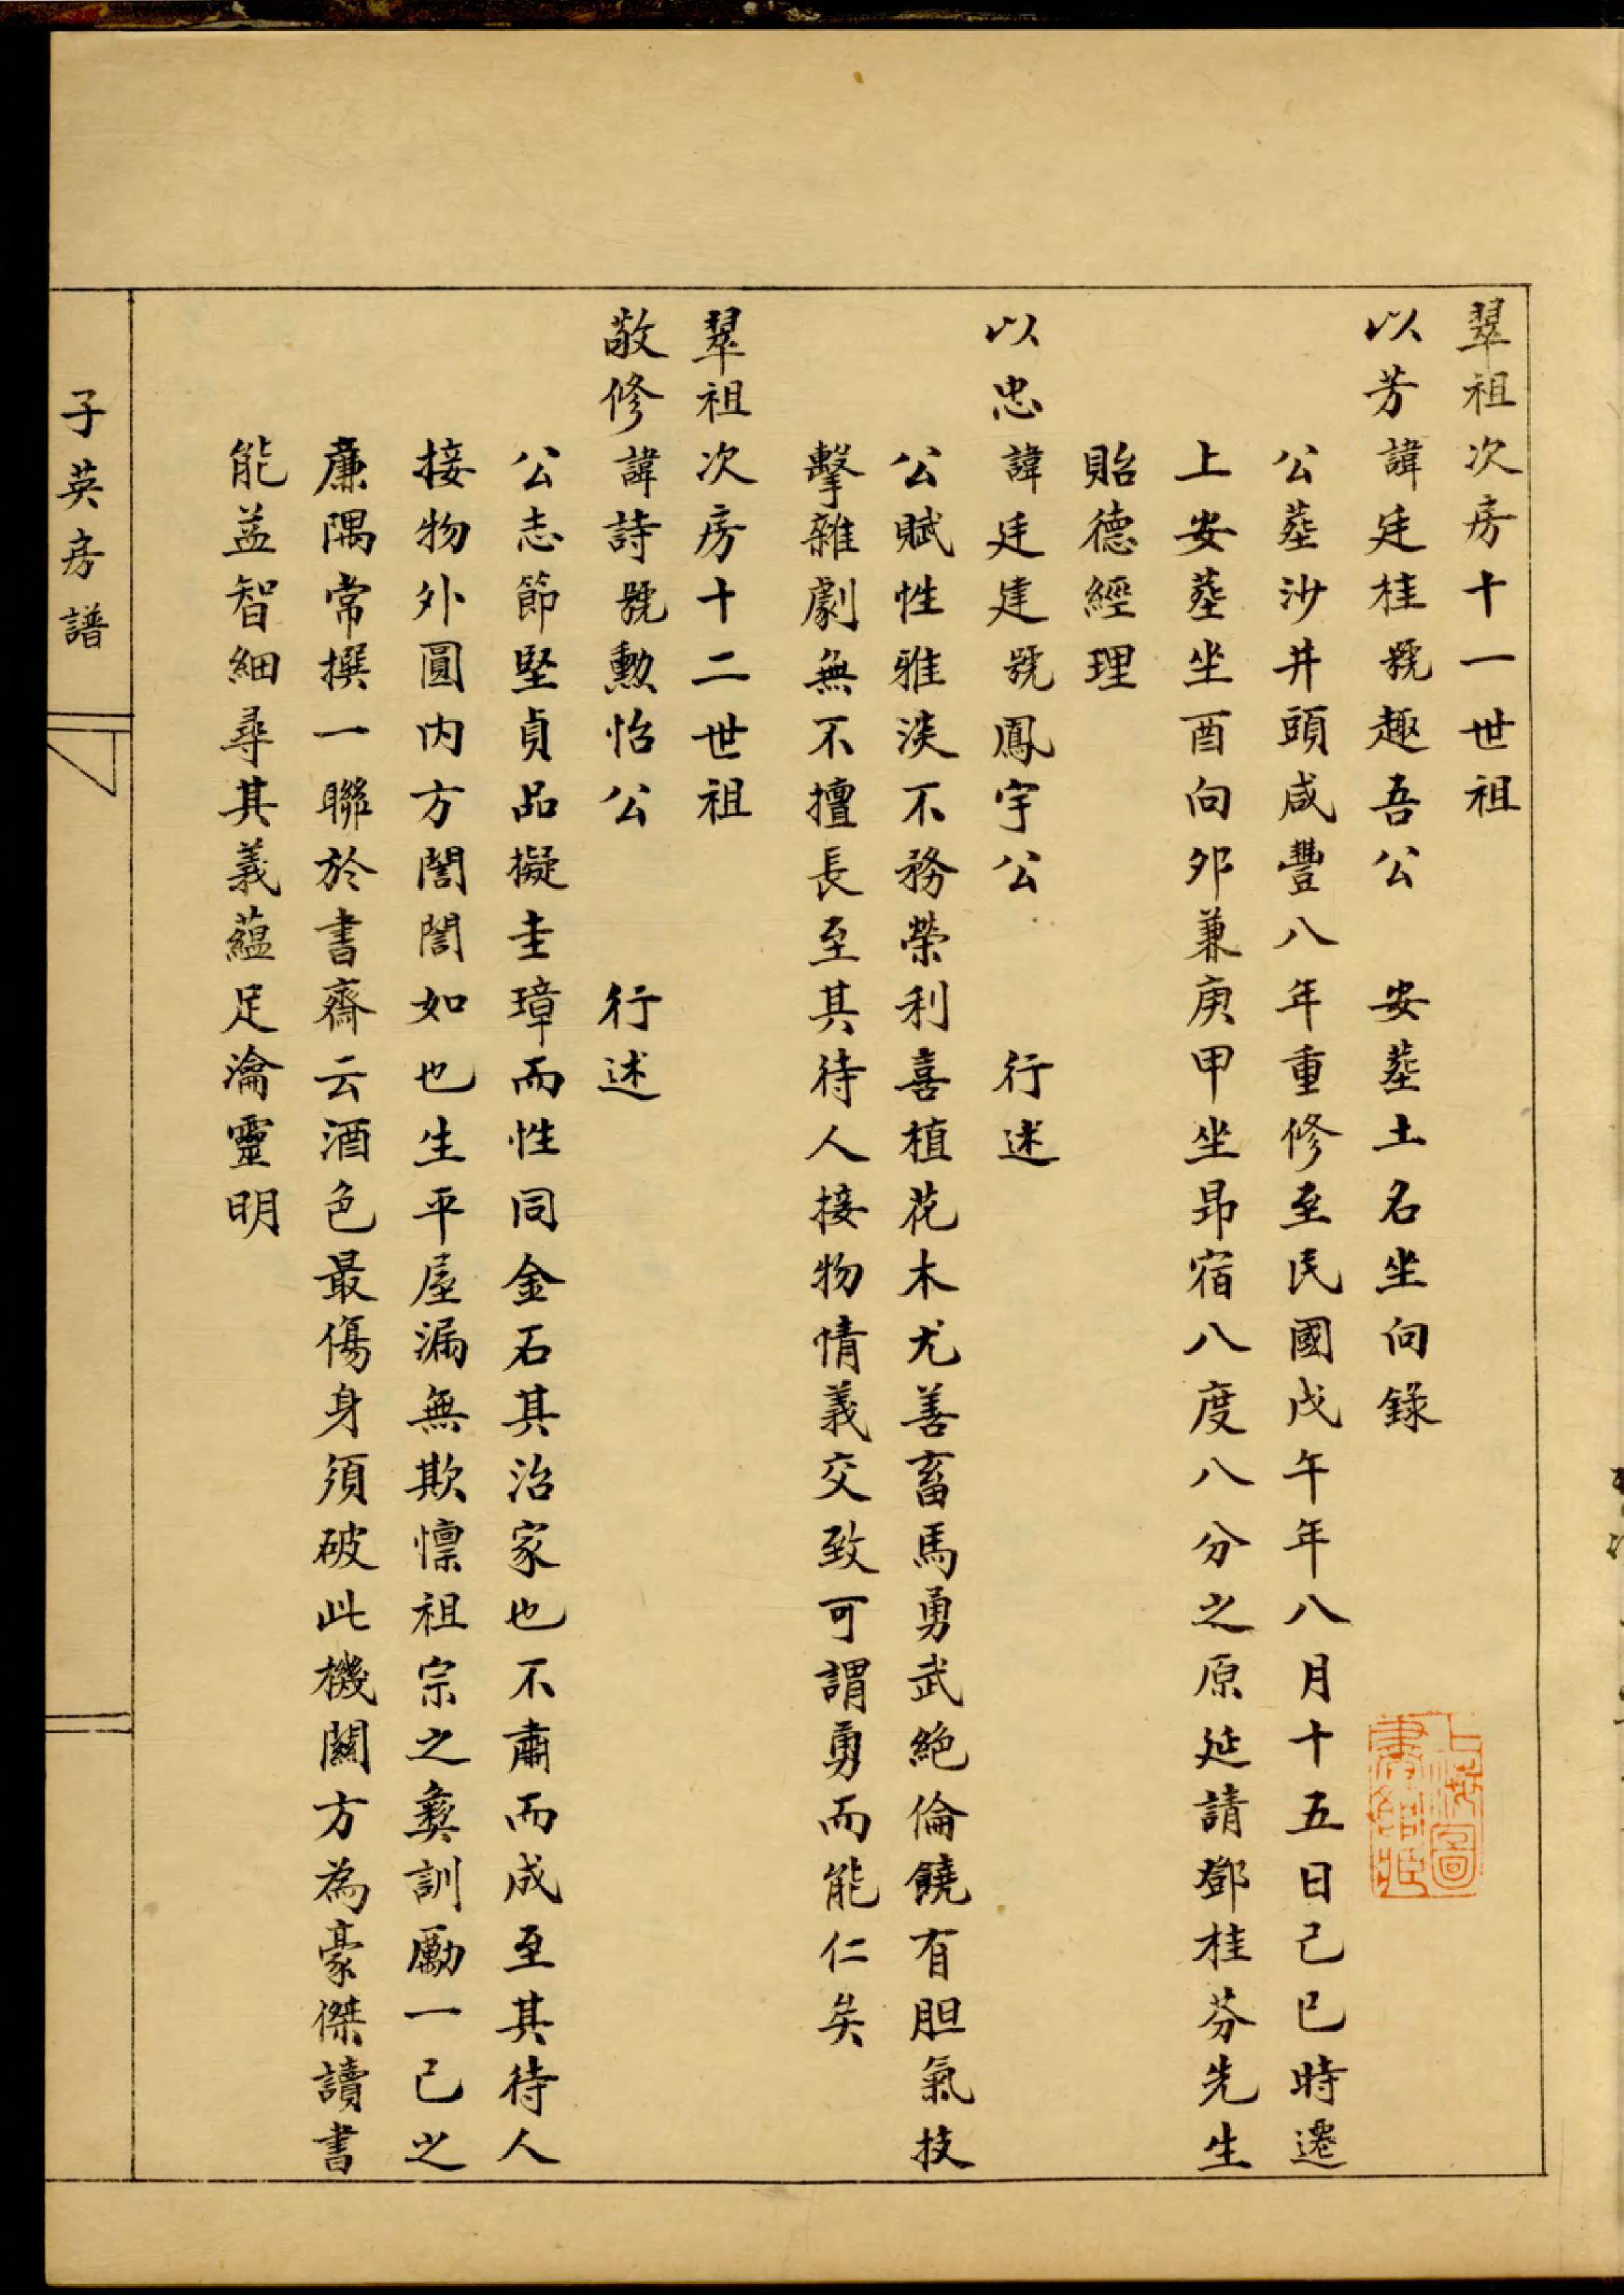 翠祖次房十一世祖
以芳諱廷桂號趣吾公 安塟土名坐向錄
公塟沙井頭咸豐八年重修至民國戊午年八月十五日己巳時遷
上安塟坐酉向夘兼庚甲坐昴宿八度八分之原延請鄧桂芬先生
貽德經理
以忠諱廷建號鳳宇公 行述
公賦性雅淡不務榮利喜植花木尤善畜馬勇武絶倫饒有胆氣技
擊雜劇無不擅長至其待人接物情義交致可謂勇而能仁矣
翠祖次房十二世祖
敬修諱詩號勲怡公 行述
公志節堅貞品擬圭璋而性同金石其治家也不肅而成至其待人
接物外圓内方誾誾如也生平屋漏無欺懍祖宗之彝訓勵一己之
亷隅常撰一聯於書齋云酒色最傷身須破此機關方為豪傑讀書
能益智細尋其義蘊足瀹靈明
子英房譜
上海圖
書館藏